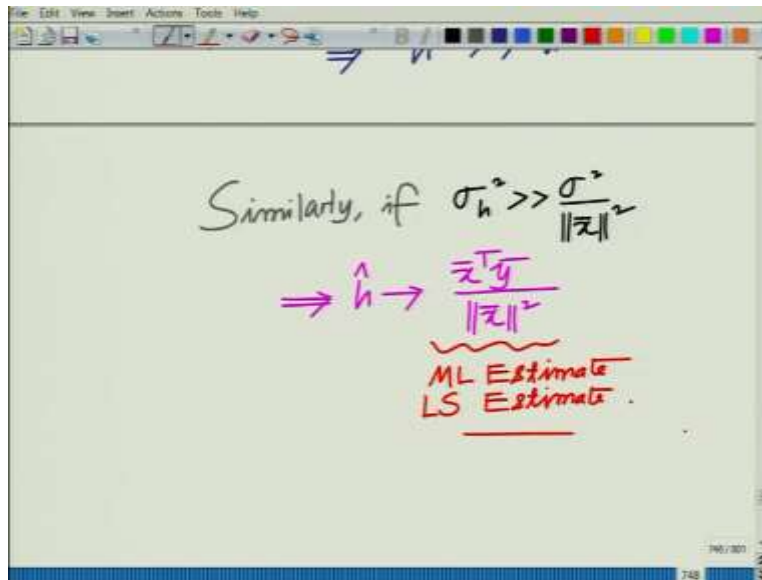 File Edit View Insert Actions Tools Help
B I
Similarly, if σ_h² >> σ²/||x̄||²
⇒ ĥ → x̄ᵀȳ/||x̄||²
ML Estimate
LS Estimate.
748